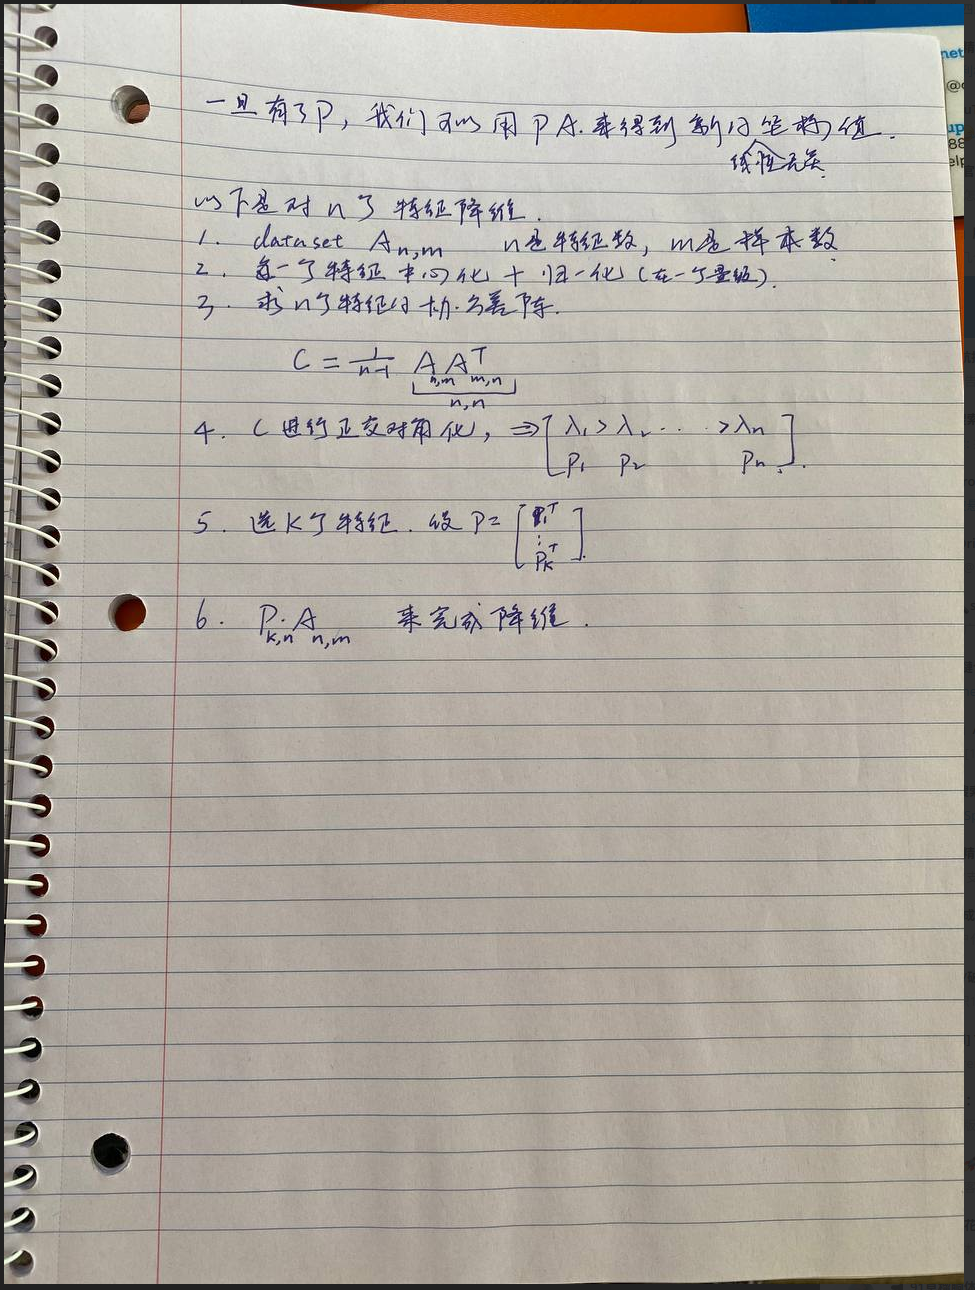 一旦有了P，我们可以用PA.来得到新的坐标值.
线性无关.
以下是对n个特征降维.
1. dataset A_{n,m} n是特征数，m是样本数
2. 每一个特征中心化+归一化(在一个量级).
3. 求n个特征的协方差阵.
C = \frac{1}{n-1} A_{n,m} A^T_{m,n}
n,n
4. C进行正交对角化，⇒ [ λ₁ > λ₂ ... > λn ]
P₁ P₂ Pn
5. 选K个特征. 设P = [ P₁^T
⋮
P_K^T ]
6. P_{k,n} · A_{n,m} 来完成降维.
net
@
up
88
elp